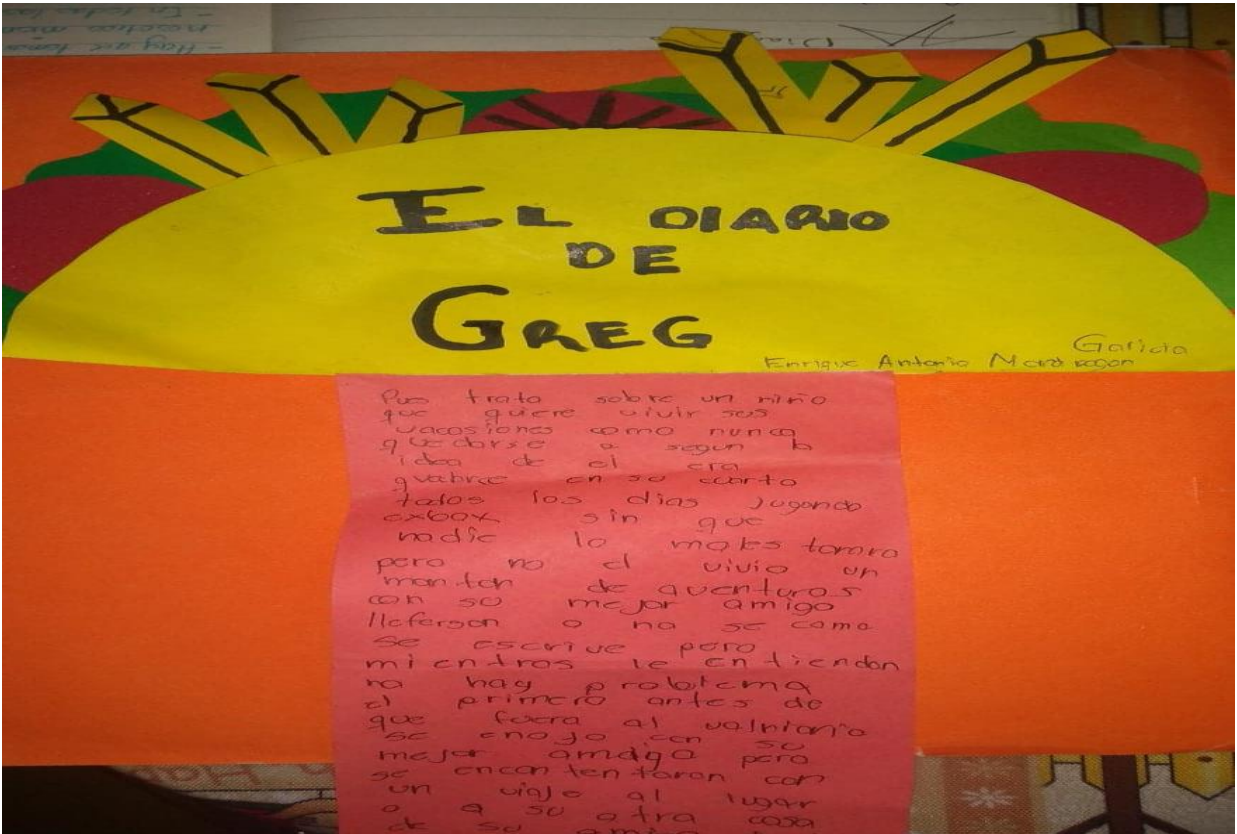 - Hay que tomar
nosotros
- En todas las
EL DIARIO
DE
GREG
Garicia
Enrique Antonio Mondragon
Pues trata sobre un niño
que quiere vivir sus
vacasiones como nunca
quedarse a segun la
idea de el era
en su cuarto
todos los dias jugando
exbox sin que
nadie lo moles tomra
pero no el vivio un
monton de aventuras
con su mejor amigo
lleferson o no se como
se escrive pero
mientras le entiendan
no hay problema
el primero antes de
que fuera al
se enojo con su
mejor amdigo pero
se encontentaron con
un viaje al lugar
o a su otra casa
de su